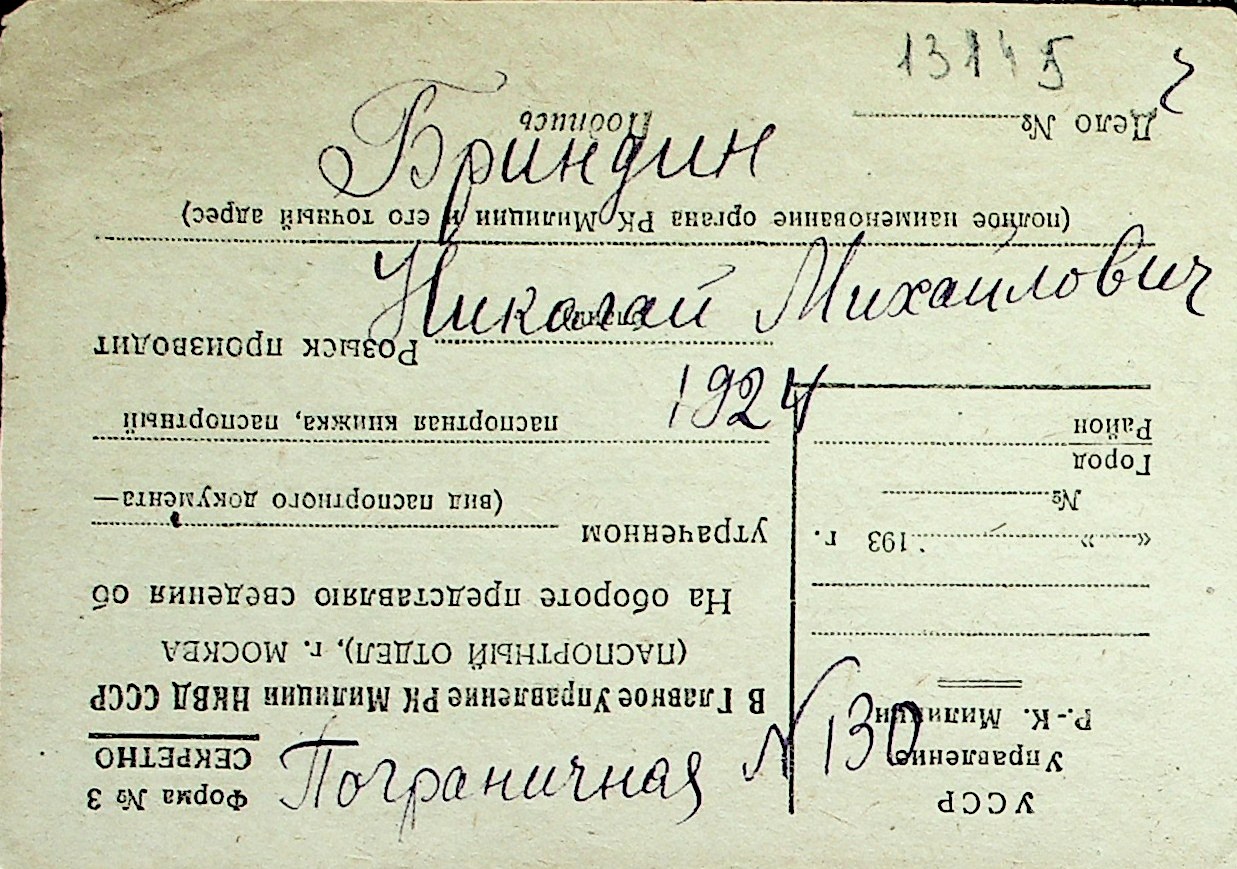 13145
Бриндин
Николай Михайлович
1924
Пограничная № 130
УССР
Управление
Р.-К. Милиции
« » 193 г.
№
Город
Район
Форма № 3
СЕКРЕТНО
В Главное Управление РК Милиции НКВД СССР
(ПАСПОРТНЫЙ ОТДЕЛ), г. МОСКВА
На обороте представляю сведения об
утраченном
(вид паспортного документа—
паспортная книжка, паспортный
Розыск производит
(полное наименование органа РК Милиции и его точный адрес)
Дело №
Подпись